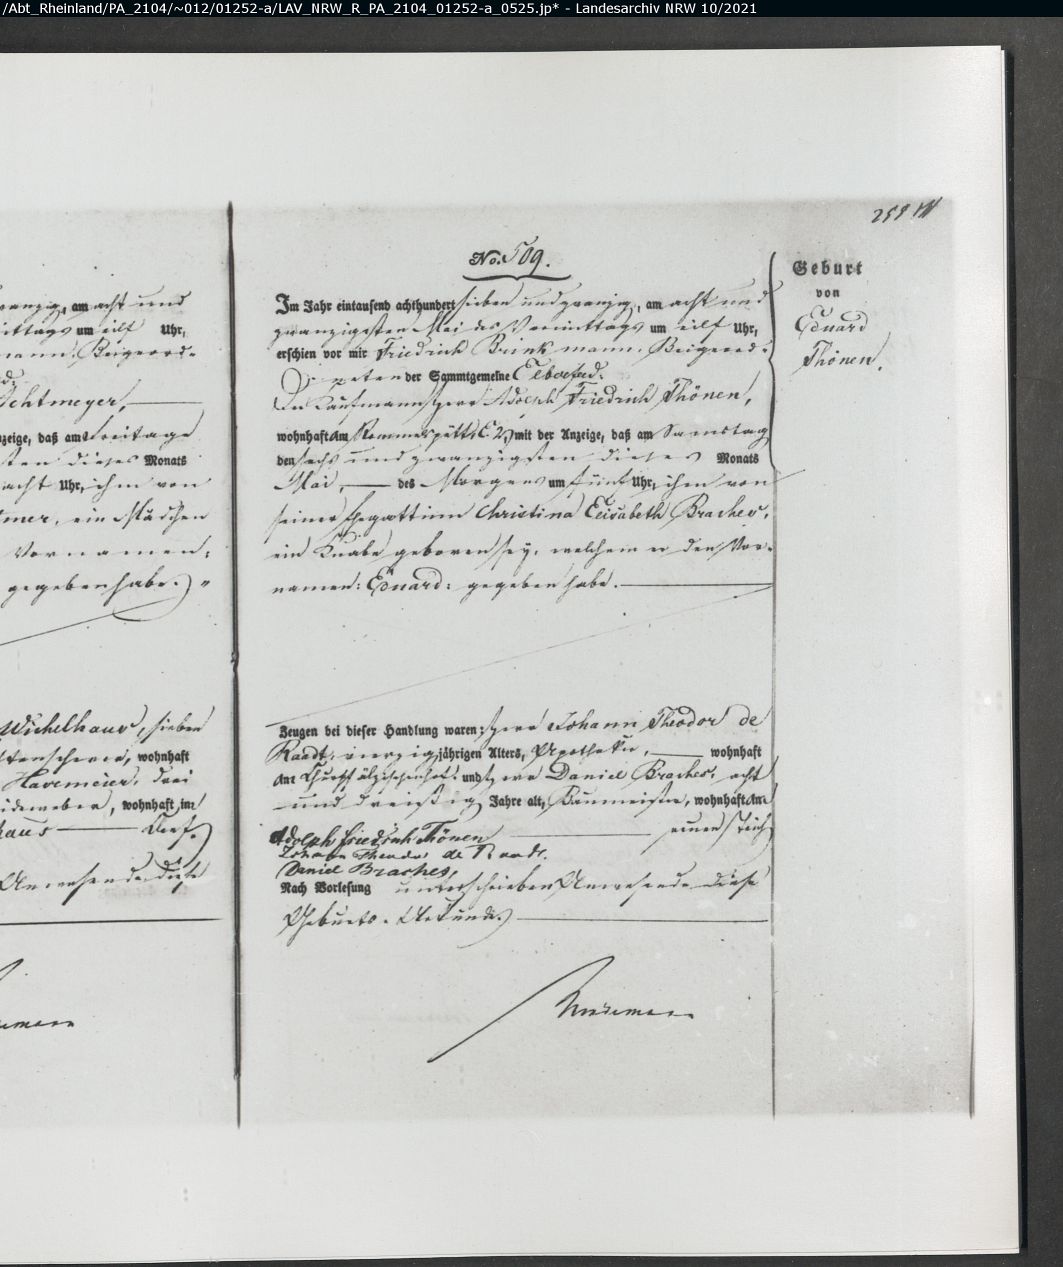 /Abt_Rheinland/PA_2104/~012/01252-a/LAV_NRW_R_PA_2104_01252-a_0525.jp* - Landesarchiv NRW 10/2021
259
No. 509.
Geburt
von
Eduard
Thönen.
Im Jahr eintausend achthundert sieben und zwanzig, am acht und
zwanzigsten Mai des Vormittags um eilf Uhr,
erschien vor mir Friedrich Brinkmann, Beigeord-
neten der Sammtgemeine Elberfeld.
Der Kaufmann Herr Adolph Friedrich Thönen,
wohnhaft am mit der Anzeige, daß am Samstag
den sechs und zwanzigsten dieses Monats
Mai, des Morgens um fünf Uhr, ihm von
seiner Ehegattinn Christina Elisabeth Braches,
ein Knabe geboren sey, welchem er den Vor-
namen: Eduard: gegeben habe.
Zeugen bei dieser Handlung waren: Herr Johann Theodor de
Raadt, vierzig jährigen Alters, Apotheker, wohnhaft
am und Herr Daniel Braches, acht
und dreißig Jahre alt, Baumeister, wohnhaft am
Adolph Friedrich Thönen
Johann Theodor de Raadt.
Daniel Braches,
Nach Vorlesung unterschrieben Anwesende diese
Geburts-Urkunde.
anzig, am acht und
ittags um eilf Uhr,
mann, Beigeord-
chtmeyer,
zeige, daß am Freitage
sten dieses Monats
acht Uhr, ihm von
mer, ein Mädchen
Vornamen:
gegeben habe.
Wichelhaus, sieben
wohnhaft
Havemeier, drei
idenweber, wohnhaft im
haus
Anwesende diese